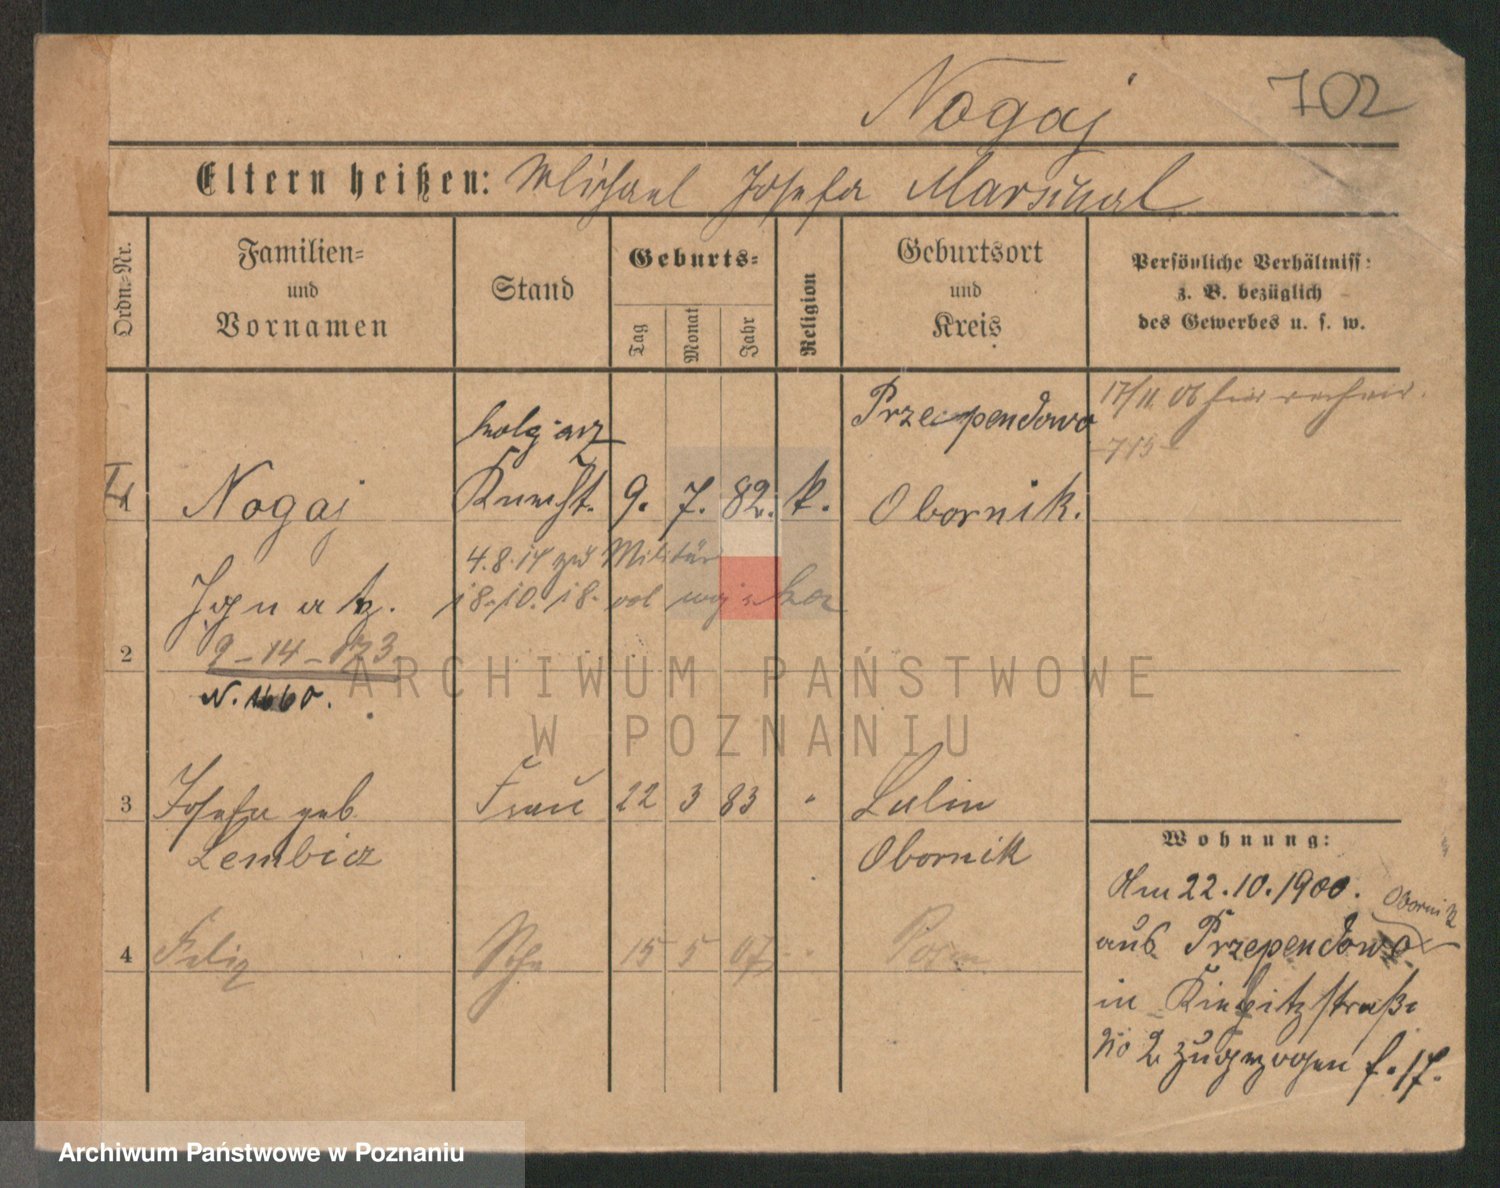 Nogaj
702
Eltern heißen: Michael Josefa Marschal
Ordn.-Nr.
Familien-
und
Vornamen
Stand
Geburts-
Tag
Monat
Jahr
Religion
Geburtsort
und
Kreis
Persönliche Verhältniss:
z. B. bezüglich
des Gewerbes u. s. w.
Przependowo
17/11 06
713
Nogaj
Knecht. 9. 7. 82. k.
Obornik.
4.8.14 zum Militär
Ignatz.
18.10.18. od wojska
2
9-14-173
N. 1660.
3
Josefa geb.
Frau 22 3 83 "
Lulin
Lembicz
Obornik
4
Felix
Sohn 15 5 07
Posen
Wohnung:
Am 22.10.1900.
Obornik
aus Przependowo
in Kiebitzstraße
No 2 zugezogen f. 17.
ARCHIWUM PAŃSTWOWE
W POZNANIU
Archiwum Państwowe w Poznaniu